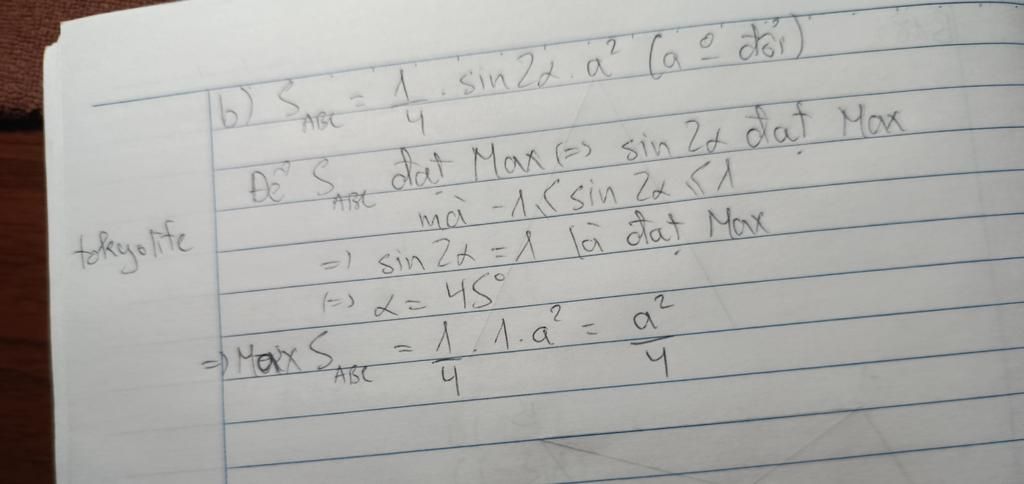 b) S_ABC = 1/4 . sin2α . a² (a º̲ đổi)
Để S_ABC đạt Max (=) sin 2α đạt Max
mà -1 ≤ sin 2α ≤ 1
tokyolife
=) sin 2α = 1 là đạt Max
(=) α = 45°
=) Max S_ABC = 1/4 . 1 . a² = a²/4